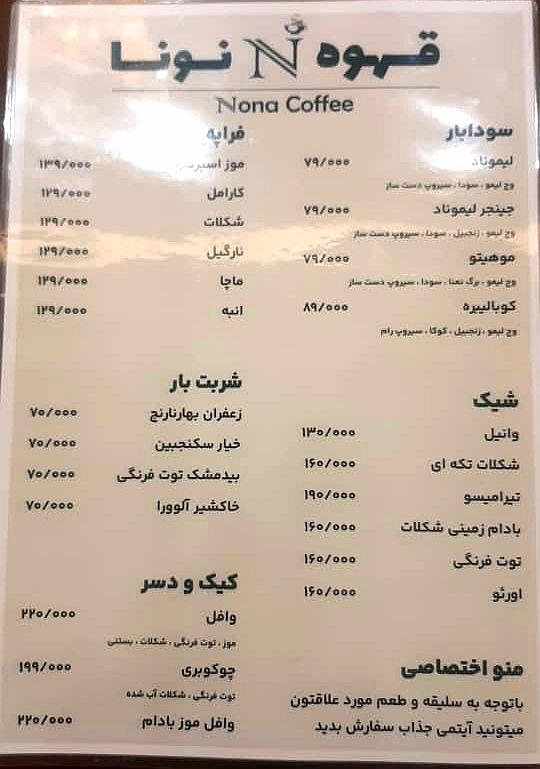 قهوه N نونا
Nona Coffee
سودابار
لیموناد ۷۹/۰۰۰
وج لیمو ، سودا ، سیروپ دست ساز
جینجر لیموناد ۷۹/۰۰۰
وج لیمو ، زنجبیل ، سودا ، سیروپ دست ساز
موهیتو ۷۹/۰۰۰
وج لیمو ، برگ نعنا ، سودا ، سیروپ دست ساز
کوبالیبره ۸۹/۰۰۰
وج لیمو ، زنجبیل ، کوکا ، سیروپ رام
شیک
وانیل ۱۳۰/۰۰۰
شکلات تکه ای ۱۶۰/۰۰۰
تیرامیسو ۱۹۰/۰۰۰
بادام زمینی شکلات ۱۶۰/۰۰۰
توت فرنگی ۱۶۰/۰۰۰
اورئو ۱۶۰/۰۰۰
منو اختصاصی
باتوجه به سلیقه و طعم مورد علاقتون
میتونید آیتمی جذاب سفارش بدید
فراپه
موز اسپرسو ۱۳۹/۰۰۰
کارامل ۱۲۹/۰۰۰
شکلات ۱۲۹/۰۰۰
نارگیل ۱۲۹/۰۰۰
ماچا ۱۲۹/۰۰۰
انبه ۱۲۹/۰۰۰
شربت بار
زعفران بهارنارنج ۷۰/۰۰۰
خیار سکنجبین ۷۰/۰۰۰
بیدمشک توت فرنگی ۷۰/۰۰۰
خاکشیر آلوورا ۷۰/۰۰۰
کیک و دسر
وافل ۲۲۰/۰۰۰
موز ، توت فرنگی ، شکلات ، بستنی
چوکوبری ۱۹۹/۰۰۰
توت فرنگی ، شکلات آب شده
وافل موز بادام ۲۲۰/۰۰۰